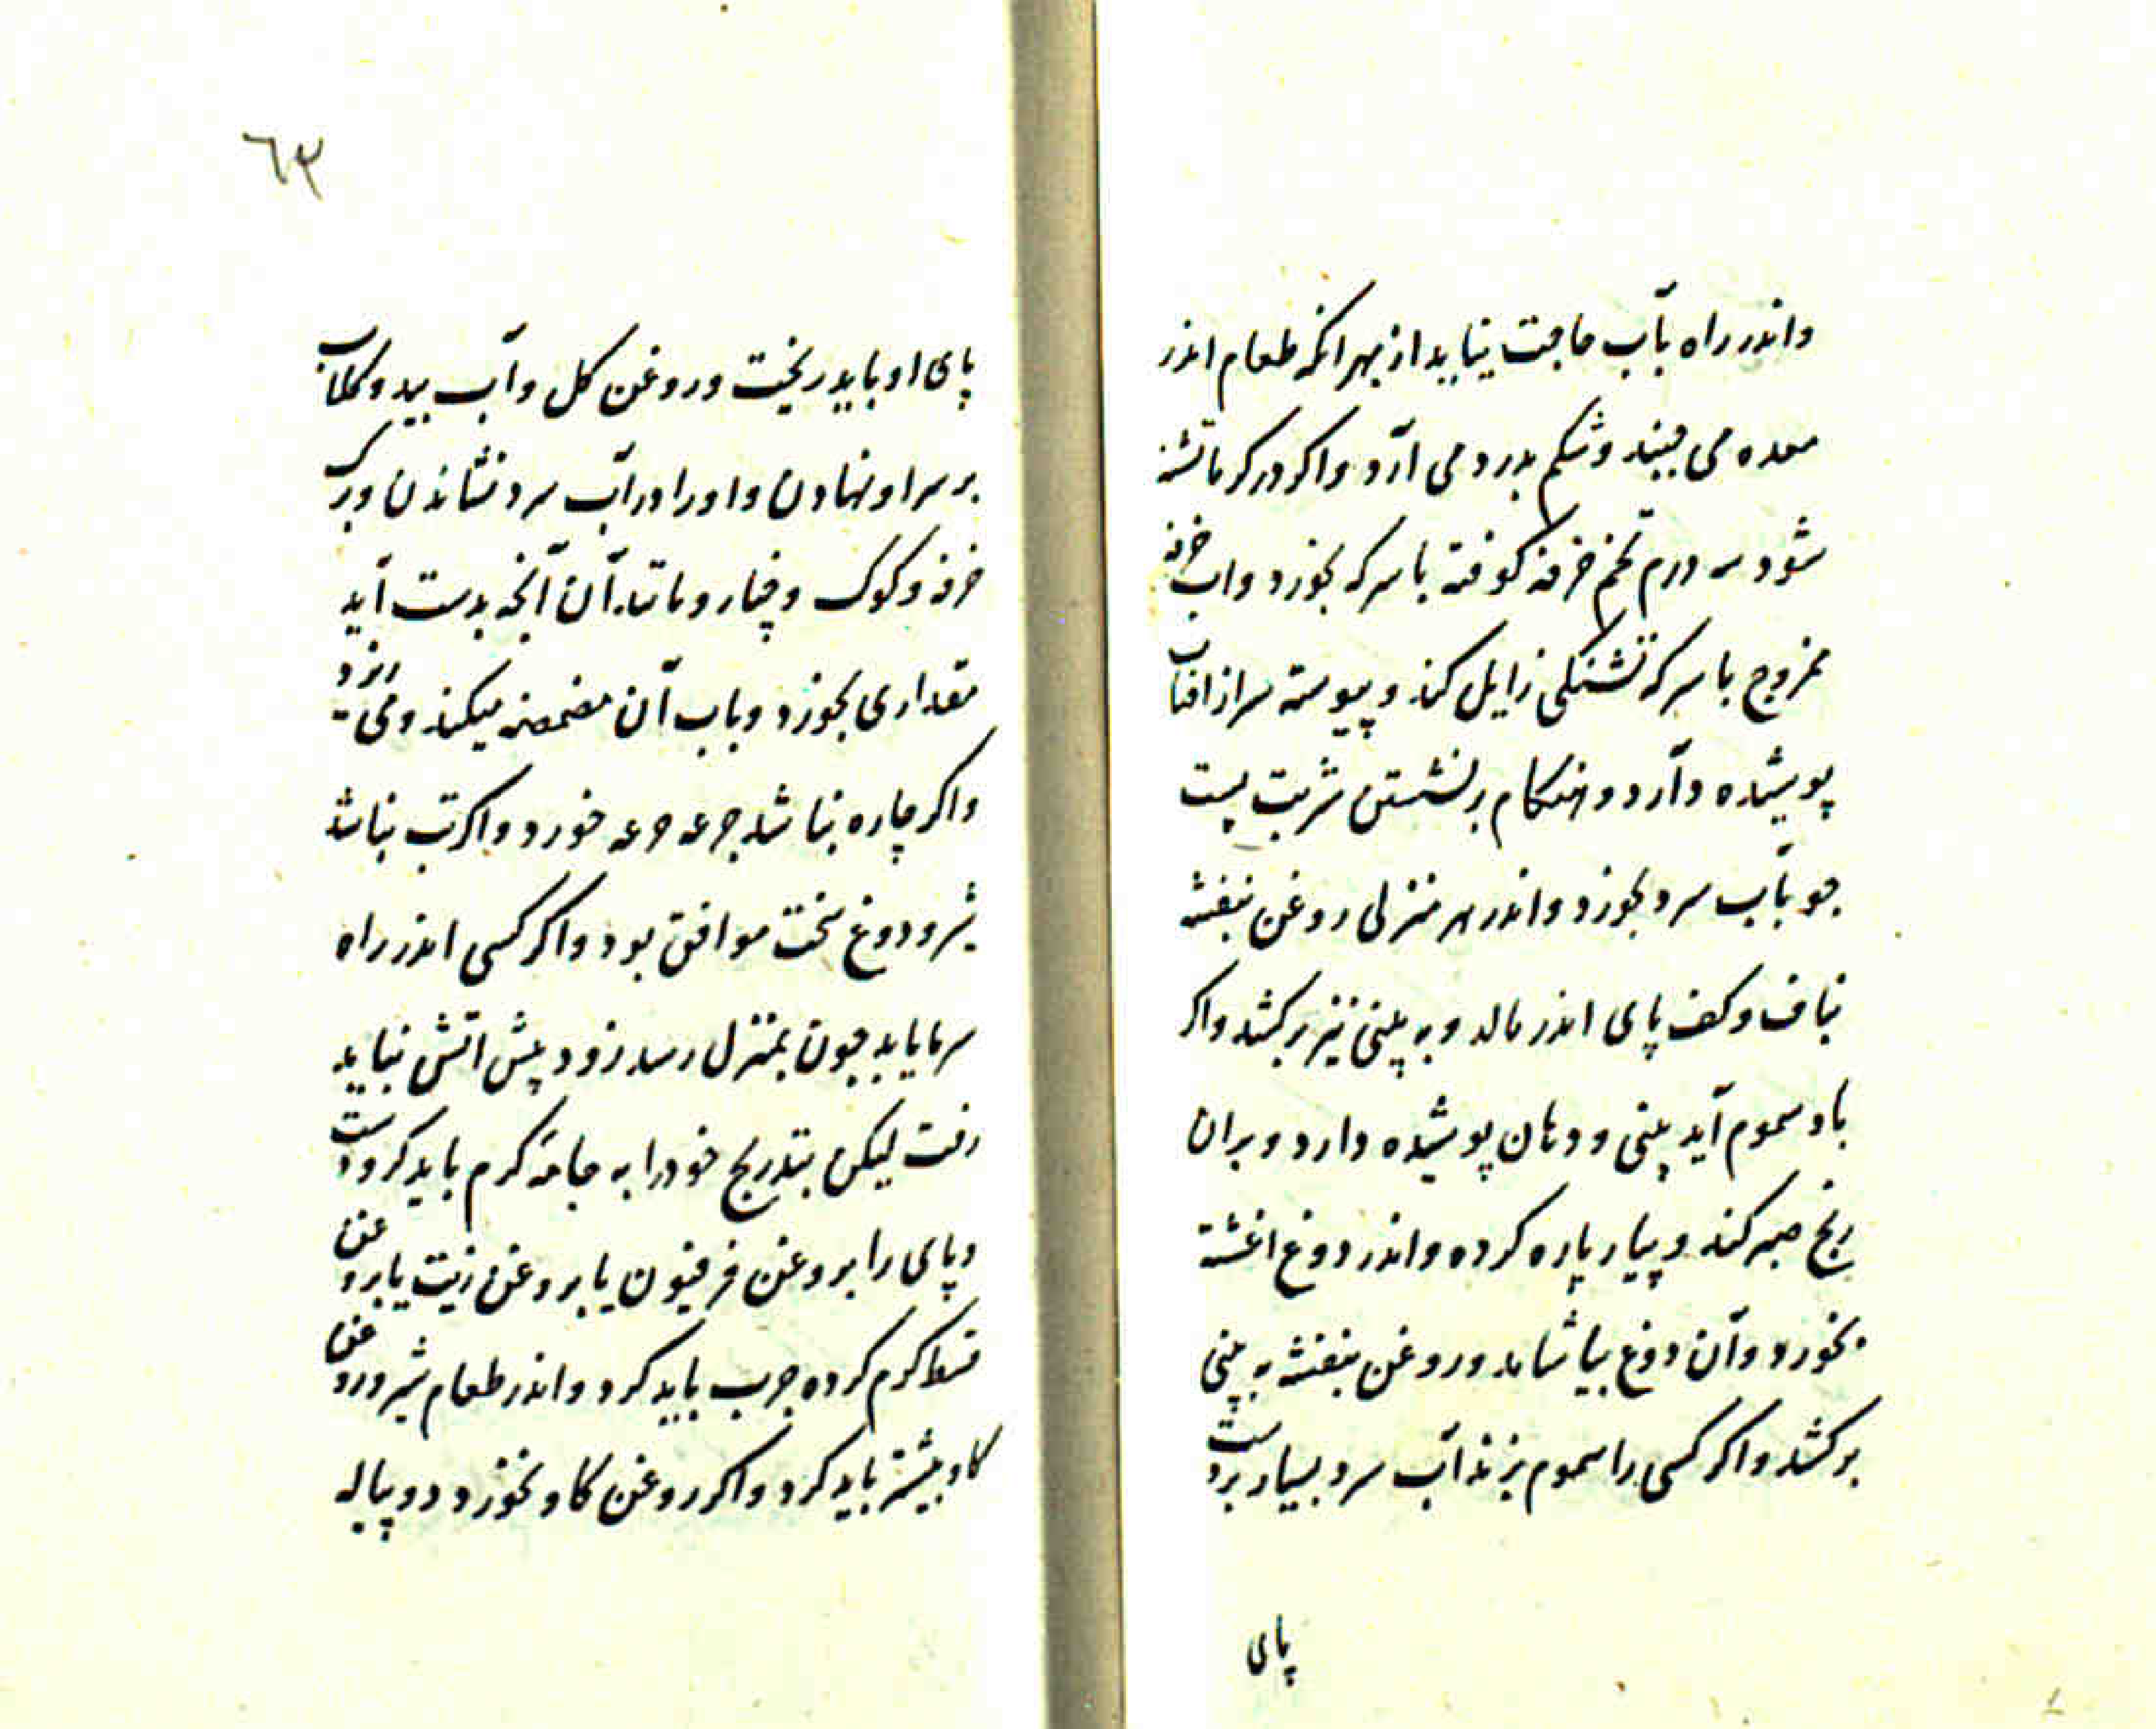 واندر راه بآب حاجت نیاید از بهر انکه طعام اندر
معده می جنبد وشکم بدرد می آرد واکر در کرما تشنه
شود سه درم تخم خرفه کوفته با سرکه بخورد واب خرفه
ممزوج با سرکه تشنکی زایل کند و پیوسته سر از افتاب
پوشیده دآرد و هنکام برنشستن شربت پست
جو بآب سرد بخورد واندر هر منزلی روغن بنفشه
بناف وکف پای اندر مالد و به بینی نیز برکشد واکر
باد سموم آید بینی و دهان پوشیده دارد و بران
رنج صبر کند و پیاز پاره کرده واندر دوغ اغشته
بخورد وآن دوغ بیاشامد وروغن بنفشه به بینی
برکشد واکر کسی را سموم بزند آب سرد بسیار بردست
پای
٦٣
پای او باید ریخت وروغن کل وآب بید وکلاب
بر سر او نهادن واورا در آب سرد نشاندن وبرک
خرفه وکوک وخیار ومانند آن آنچه بدست آید
مقداری بخورد وباب آن مضمضه میکند ومی ریزد
واکر چاره نباشد جرعه جرعه خورد واکر تب نباشد
شیر ودوغ سخت موافق بود واکر کسی اندر راه
سرما یابد چون بمنزل رسد زود پیش اتش نباید
رفت لیکن بتدریج خود را به جامهٔ کرم باید کرد ودست
وپای را بروغن فرفیون یا بروغن زیت یا بروغن
قسط کرم کرده چرب باید کرد واندر طعام شیر وروغن
کاو بیشتر باید کرد واکر روغن کاو بخورد دو پیاله